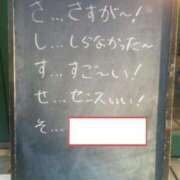 さ…さすが〜!
し…しらなかった〜
す…すご〜い!
せ…センスいい!
そ…